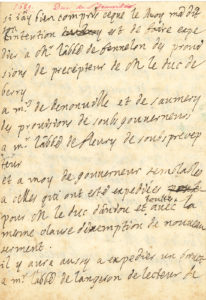 jay bien compris que le Roy ma dit
lintention est de faire expe
dier a Mr labbé de fennelon des provi
sions de precepteur de M. le duc de
berry
a mr de denonville et de saumery
des provisions de sousgouverneurs
a mr labbé de fleury de sousprecep
teur
et a moy de gouverneur semblables
a celles qui ont esté expediées
pour M. le duc danjou et avec la
mesme clause dexemption de nouveau
serment.
il y aura aussy a expedier un
a mr labbé de langeron de lecteur de